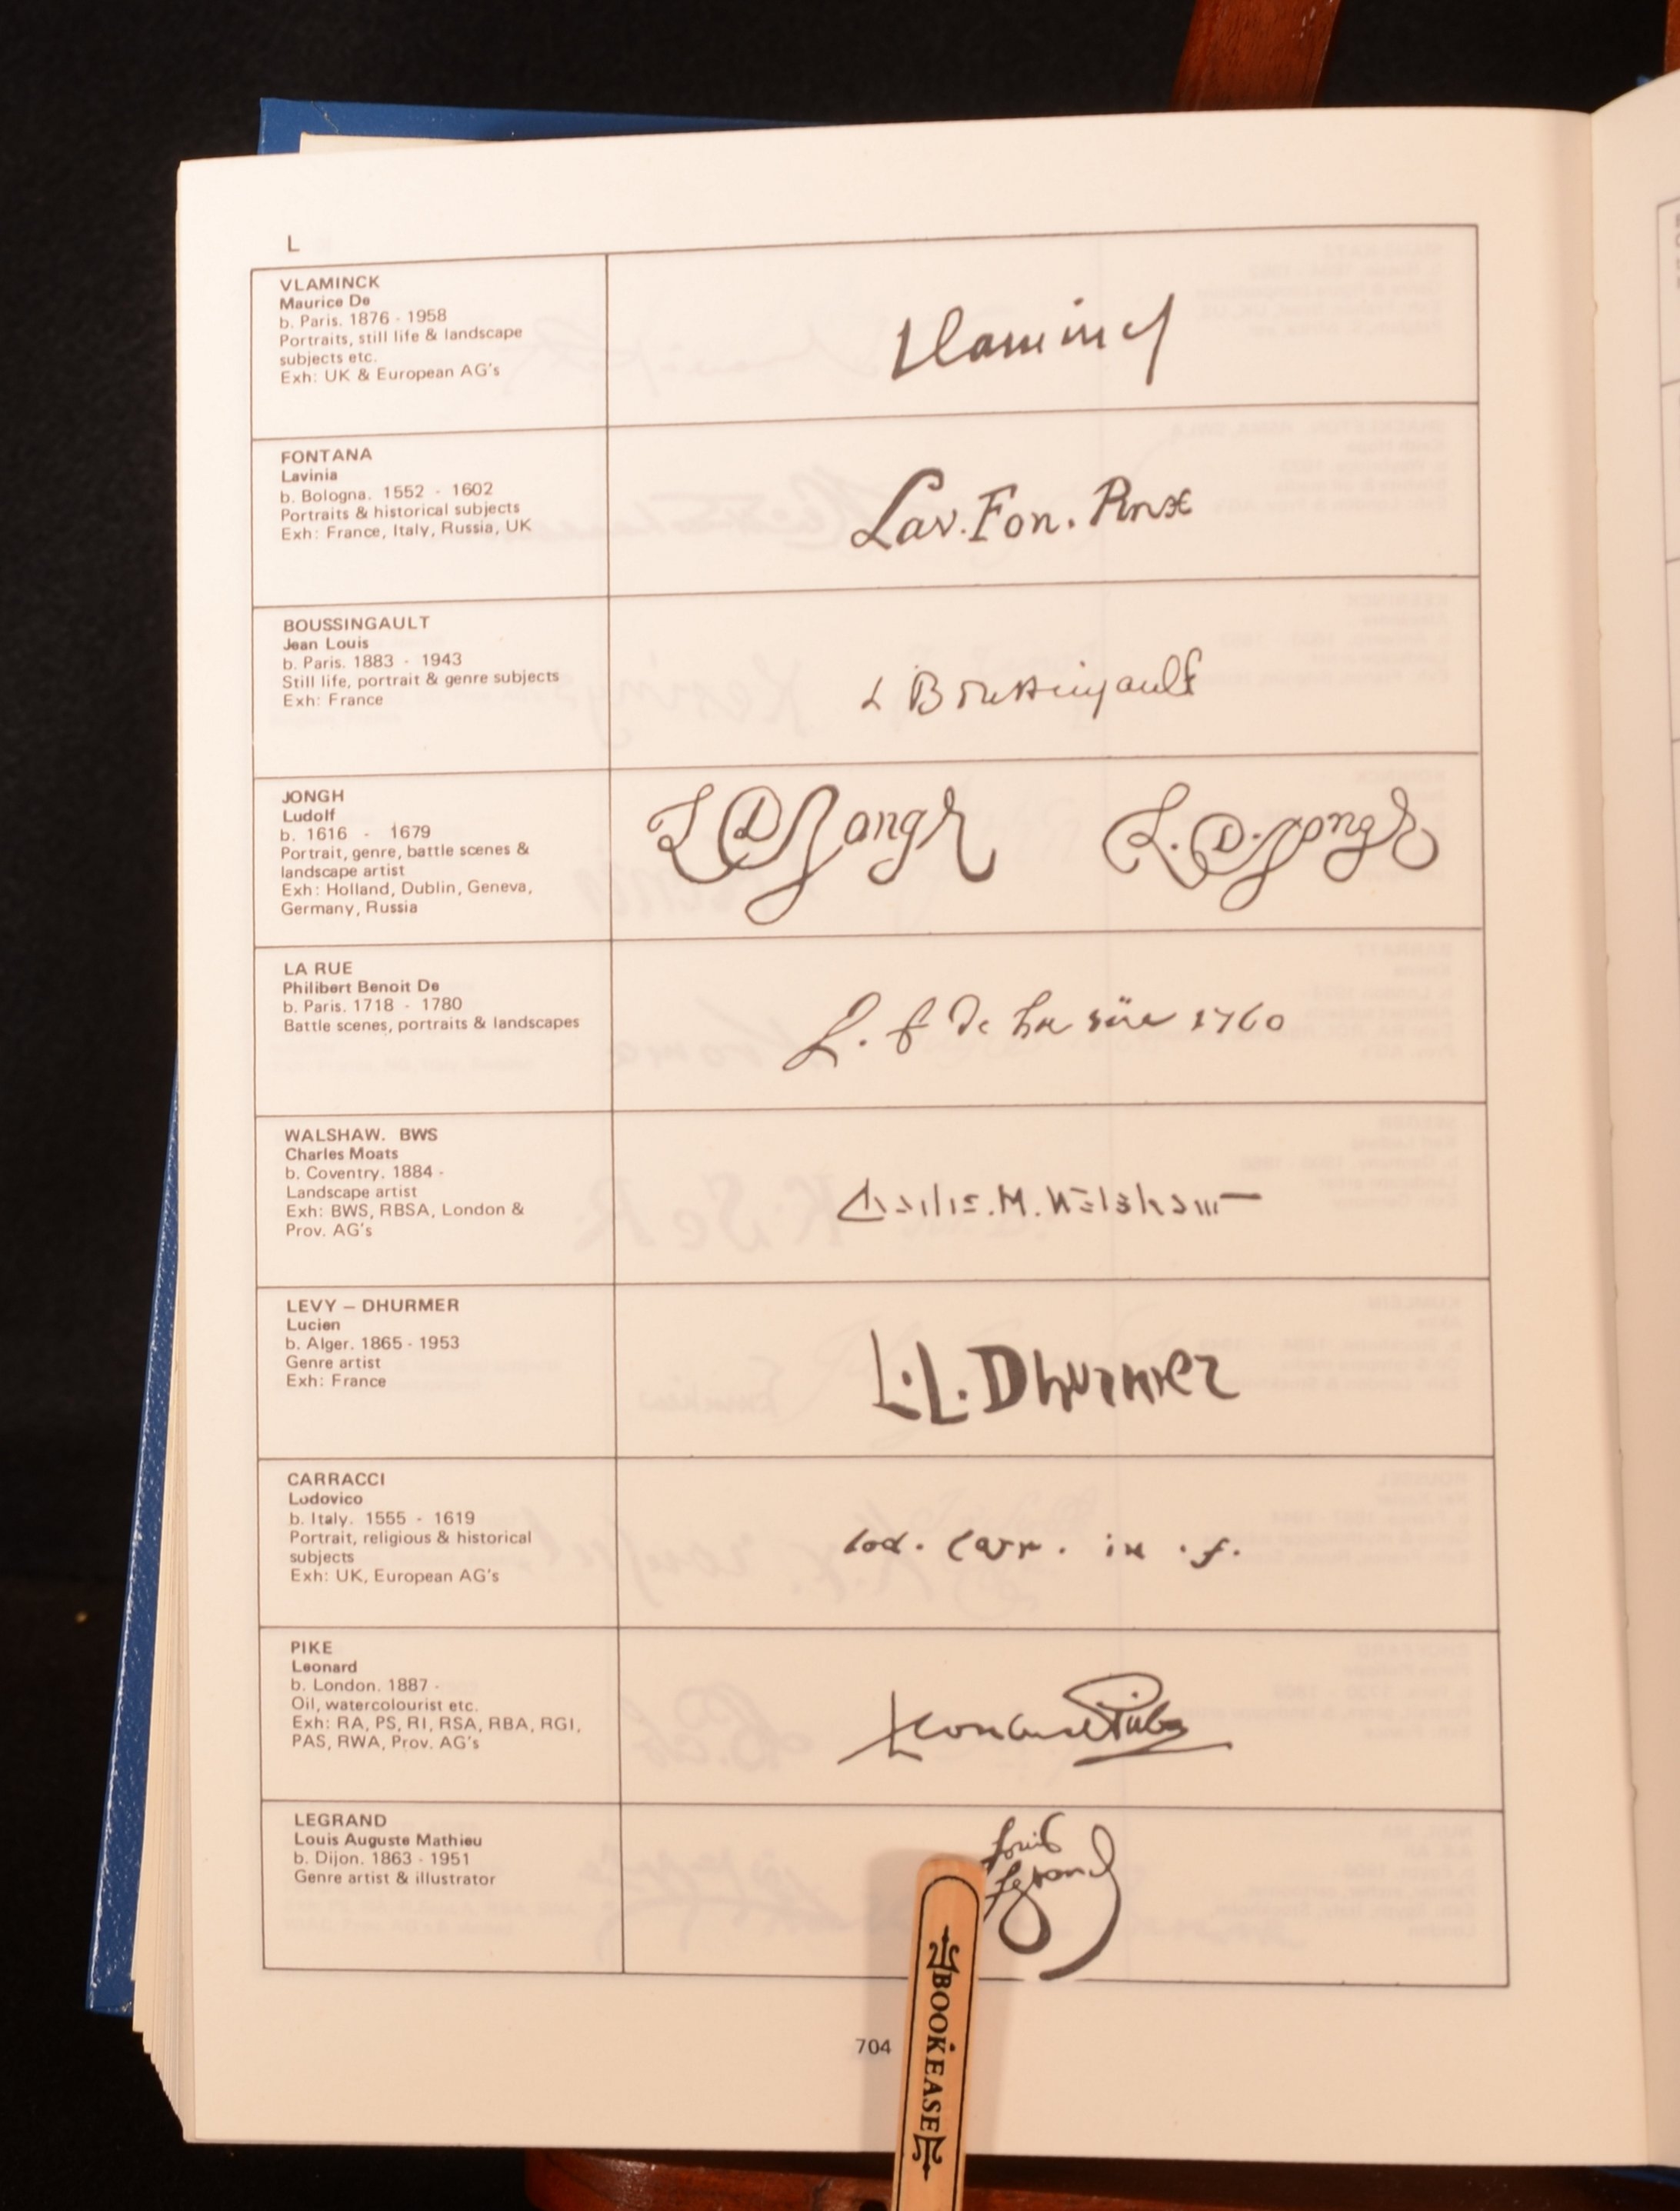 L
VLAMINCK
Maurice De
b. Paris. 1876 - 1958
Portraits, still life & landscape
subjects etc.
Exh: UK & European AG's
Vlaminck
FONTANA
Lavinia
b. Bologna. 1552 - 1602
Portraits & historical subjects
Exh: France, Italy, Russia, UK
Lav. Fon. Pinx
BOUSSINGAULT
Jean Louis
b. Paris. 1883 - 1943
Still life, portrait & genre subjects
Exh: France
L Boussingault
JONGH
Ludolf
b. 1616 - 1679
Portrait, genre, battle scenes &
landscape artist
Exh: Holland, Dublin, Geneva,
Germany, Russia
L D Jongh L. D. Jongh
LA RUE
Philibert Benoit De
b. Paris. 1718 - 1780
Battle scenes, portraits & landscapes
L. f De La rüe 1760
WALSHAW. BWS
Charles Moats
b. Coventry. 1884 -
Landscape artist
Exh: BWS, RBSA, London &
Prov. AG's
Charles. M. Walshaw
LEVY – DHURMER
Lucien
b. Alger. 1865 - 1953
Genre artist
Exh: France
L. L. Dhurmer
CARRACCI
Lodovico
b. Italy. 1555 - 1619
Portrait, religious & historical
subjects
Exh: UK, European AG's
Lod. Carr. in . f.
PIKE
Leonard
b. London. 1887 -
Oil, watercolourist etc.
Exh: RA, PS, RI, RSA, RBA, RGI,
PAS, RWA, Prov. AG's
Leonard Pike
LEGRAND
Louis Auguste Mathieu
b. Dijon. 1863 - 1951
Genre artist & illustrator
Louis
Legrand
704
BOOKEASE